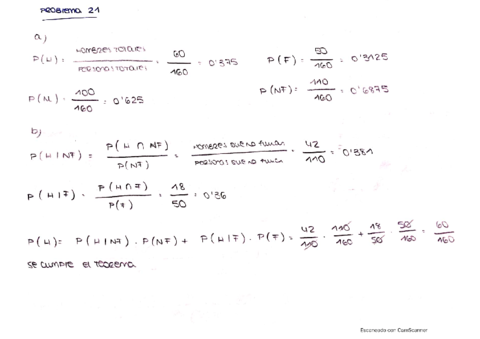 PROBLEMA 21
a)
P(H) = HOMBRES TOTALES / PERSONAS TOTALES = 60/160 = 0'375   P(F) = 50/160 = 0'3125
P(M) = 100/160 = 0'625   P(NF) = 110/160 = 0'6875
b)
P(H|NF) = P(H ∩ NF)/P(NF) = HOMBRES QUE NO FUMAN / PERSONAS QUE NO FUMAN = 42/110 = 0'381
P(H|F) = P(H∩F)/P(F) = 18/50 = 0'36
P(H) = P(H|NF) · P(NF) + P(H|F) · P(F) = 42/110 · 110/160 + 18/50 · 50/160 = 60/160
SE CUMPLE EL TEOREMA
Escaneado con CamScanner